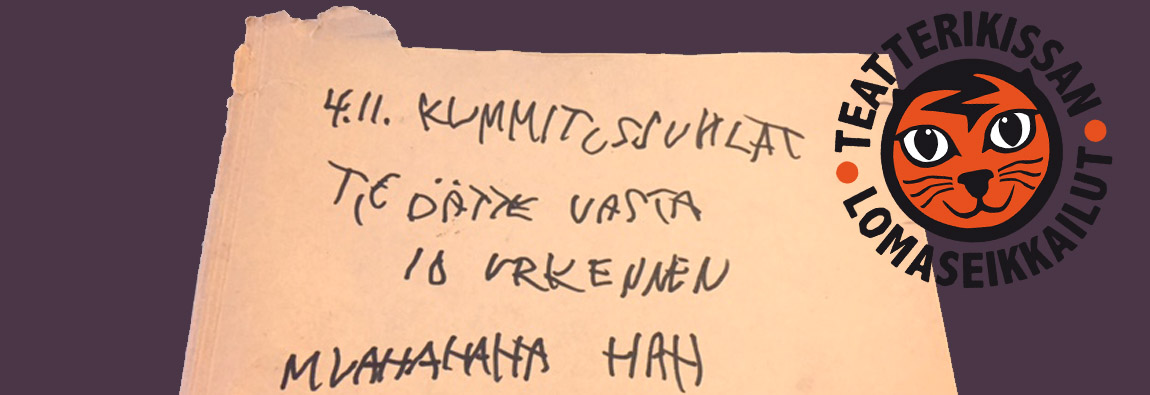 4.11. KUMMITUSJUHLAT
TIEDÄTTE VASTA
10 URKENNEN
MUAHAHAHA HAH
TEATTERIKISSAN
LOMASEIKKAILUT